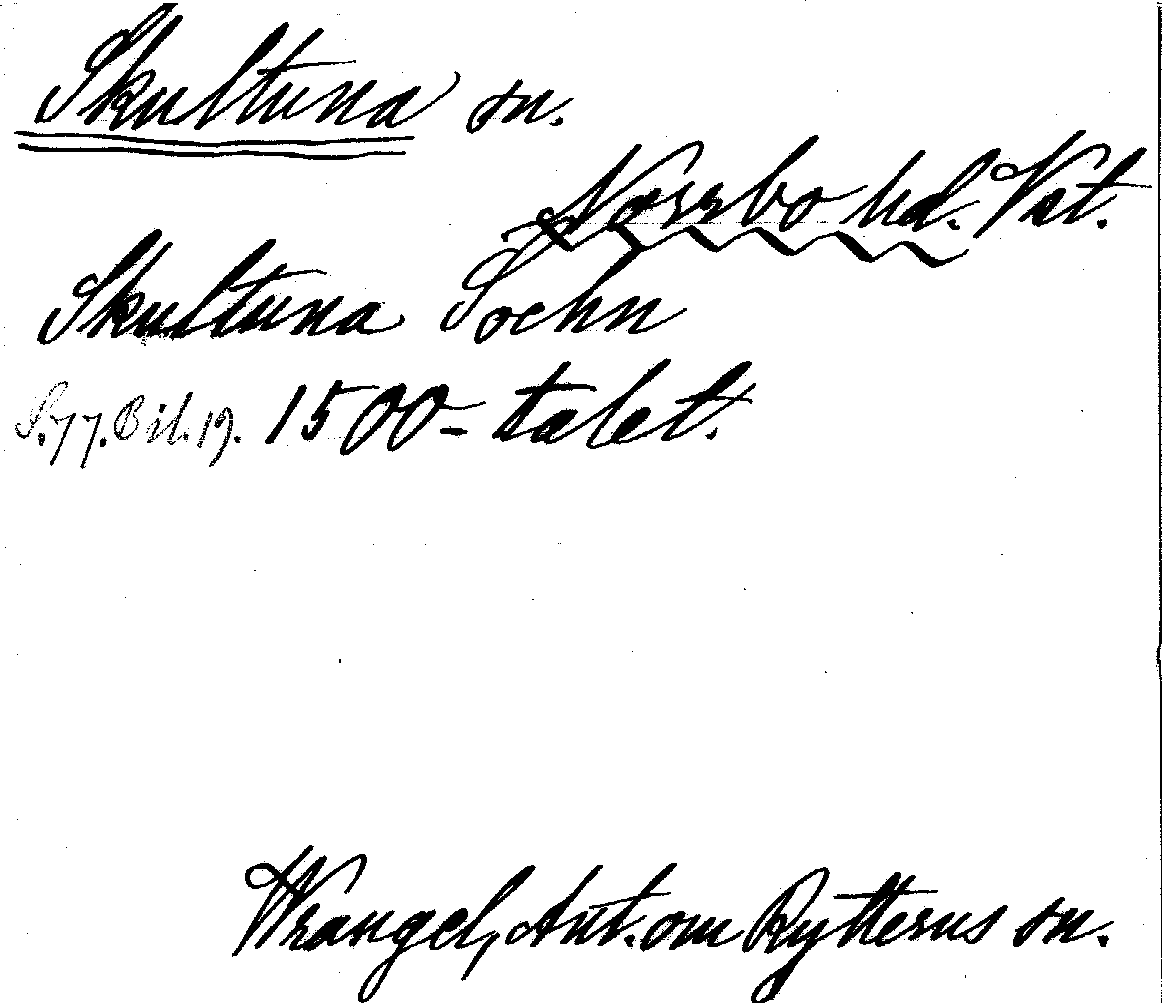 Skultuna sn.
Norrbo hd. Vst.
Skultuna Sochn
S. 77. Bil. 19. 1500-talet.
Wrangel, Ant. om Rytterns sn.